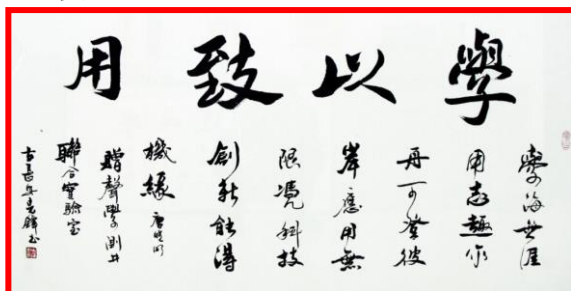 學以致用
學海無涯
用志趣作
舟可登彼
岸應用無
限憑科技
創新能得
機緣
贈聲學測井
聯合實驗室